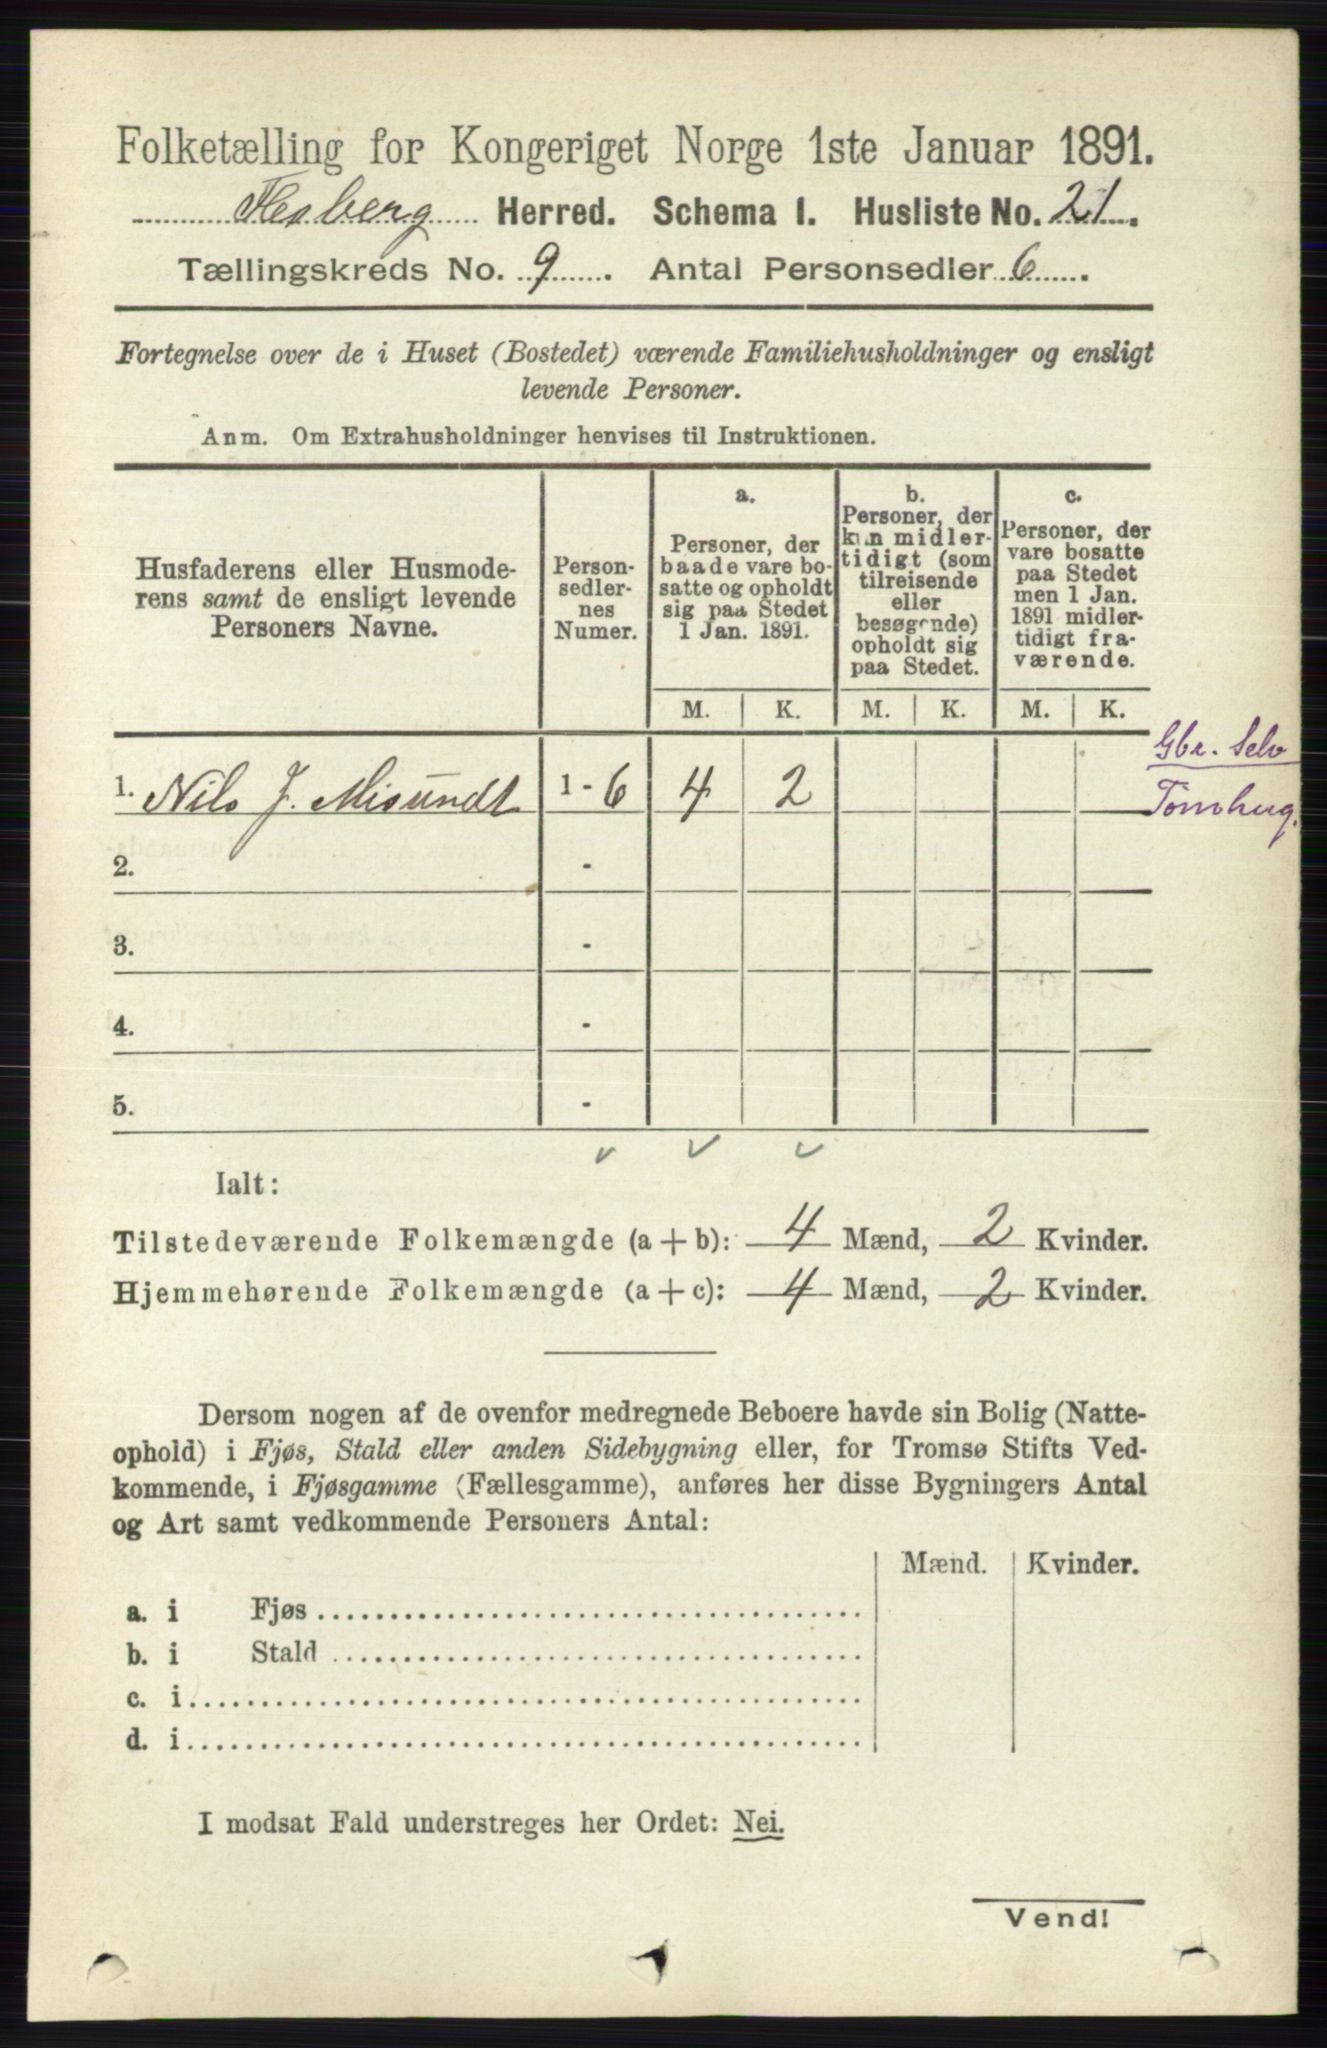 Folketælling for Kongeriget Norge 1ste Januar 1891.
Flesberg Herred. Schema I. Husliste No. 21.
Tællingskreds No. 9. Antal Personsedler 6.
Fortegnelse over de i Huset (Bostedet) værende Familiehusholdninger og ensligt
levende Personer.
Anm. Om Extrahusholdninger henvises til Instruktionen.
Husfaderens eller Husmode-
rens samt de ensligt levende
Personers Navne.
Person-
sedler-
nes
Numer.
a.
Personer, der
baade vare bo-
satte og opholdt
sig paa Stedet
1 Jan. 1891.
b.
Personer, der
kun midler-
tidigt (som
tilreisende
eller
besøgende)
opholdt sig
paa Stedet.
c.
Personer, der
vare bosatte
paa Stedet
men 1 Jan.
1891 midler-
tidigt fra-
værende.
M. K. M. K. M. K.
Gbr. Selv
1. Nils J. Misundt 1 - 6 4 2
2. -
3. -
4. -
5. -
Ialt:
Tilstedeværende Folkemængde (a + b): 4 Mænd, 2 Kvinder.
Hjemmehørende Folkemængde (a + c): 4 Mænd, 2 Kvinder.
Dersom nogen af de ovenfor medregnede Beboere havde sin Bolig (Natte-
ophold) i Fjøs, Stald eller anden Sidebygning eller, for Tromsø Stifts Ved-
kommende, i Fjøsgamme (Fællesgamme), anføres her disse Bygningers Antal
og Art samt vedkommende Personers Antal:
Mænd. Kvinder.
a. i Fjøs
b. i Stald
c. i
d. i
I modsat Fald understreges her Ordet: Nei.
Vend!